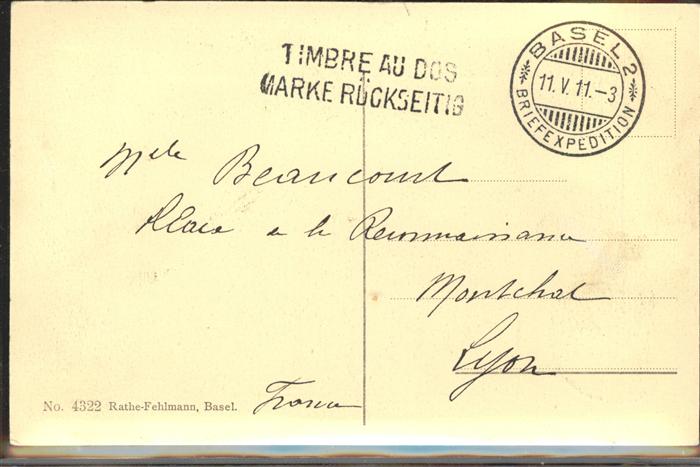 TIMBRE AU DOS
MARKE RÜCKSEITIG
BASEL 2
11. V. 11.-3
BRIEFEXPEDITION
Mlle Beaucourt
Place de la Reconnaissance
Montchat
Lyon
France
No. 4322 Rathe-Fehlmann, Basel.